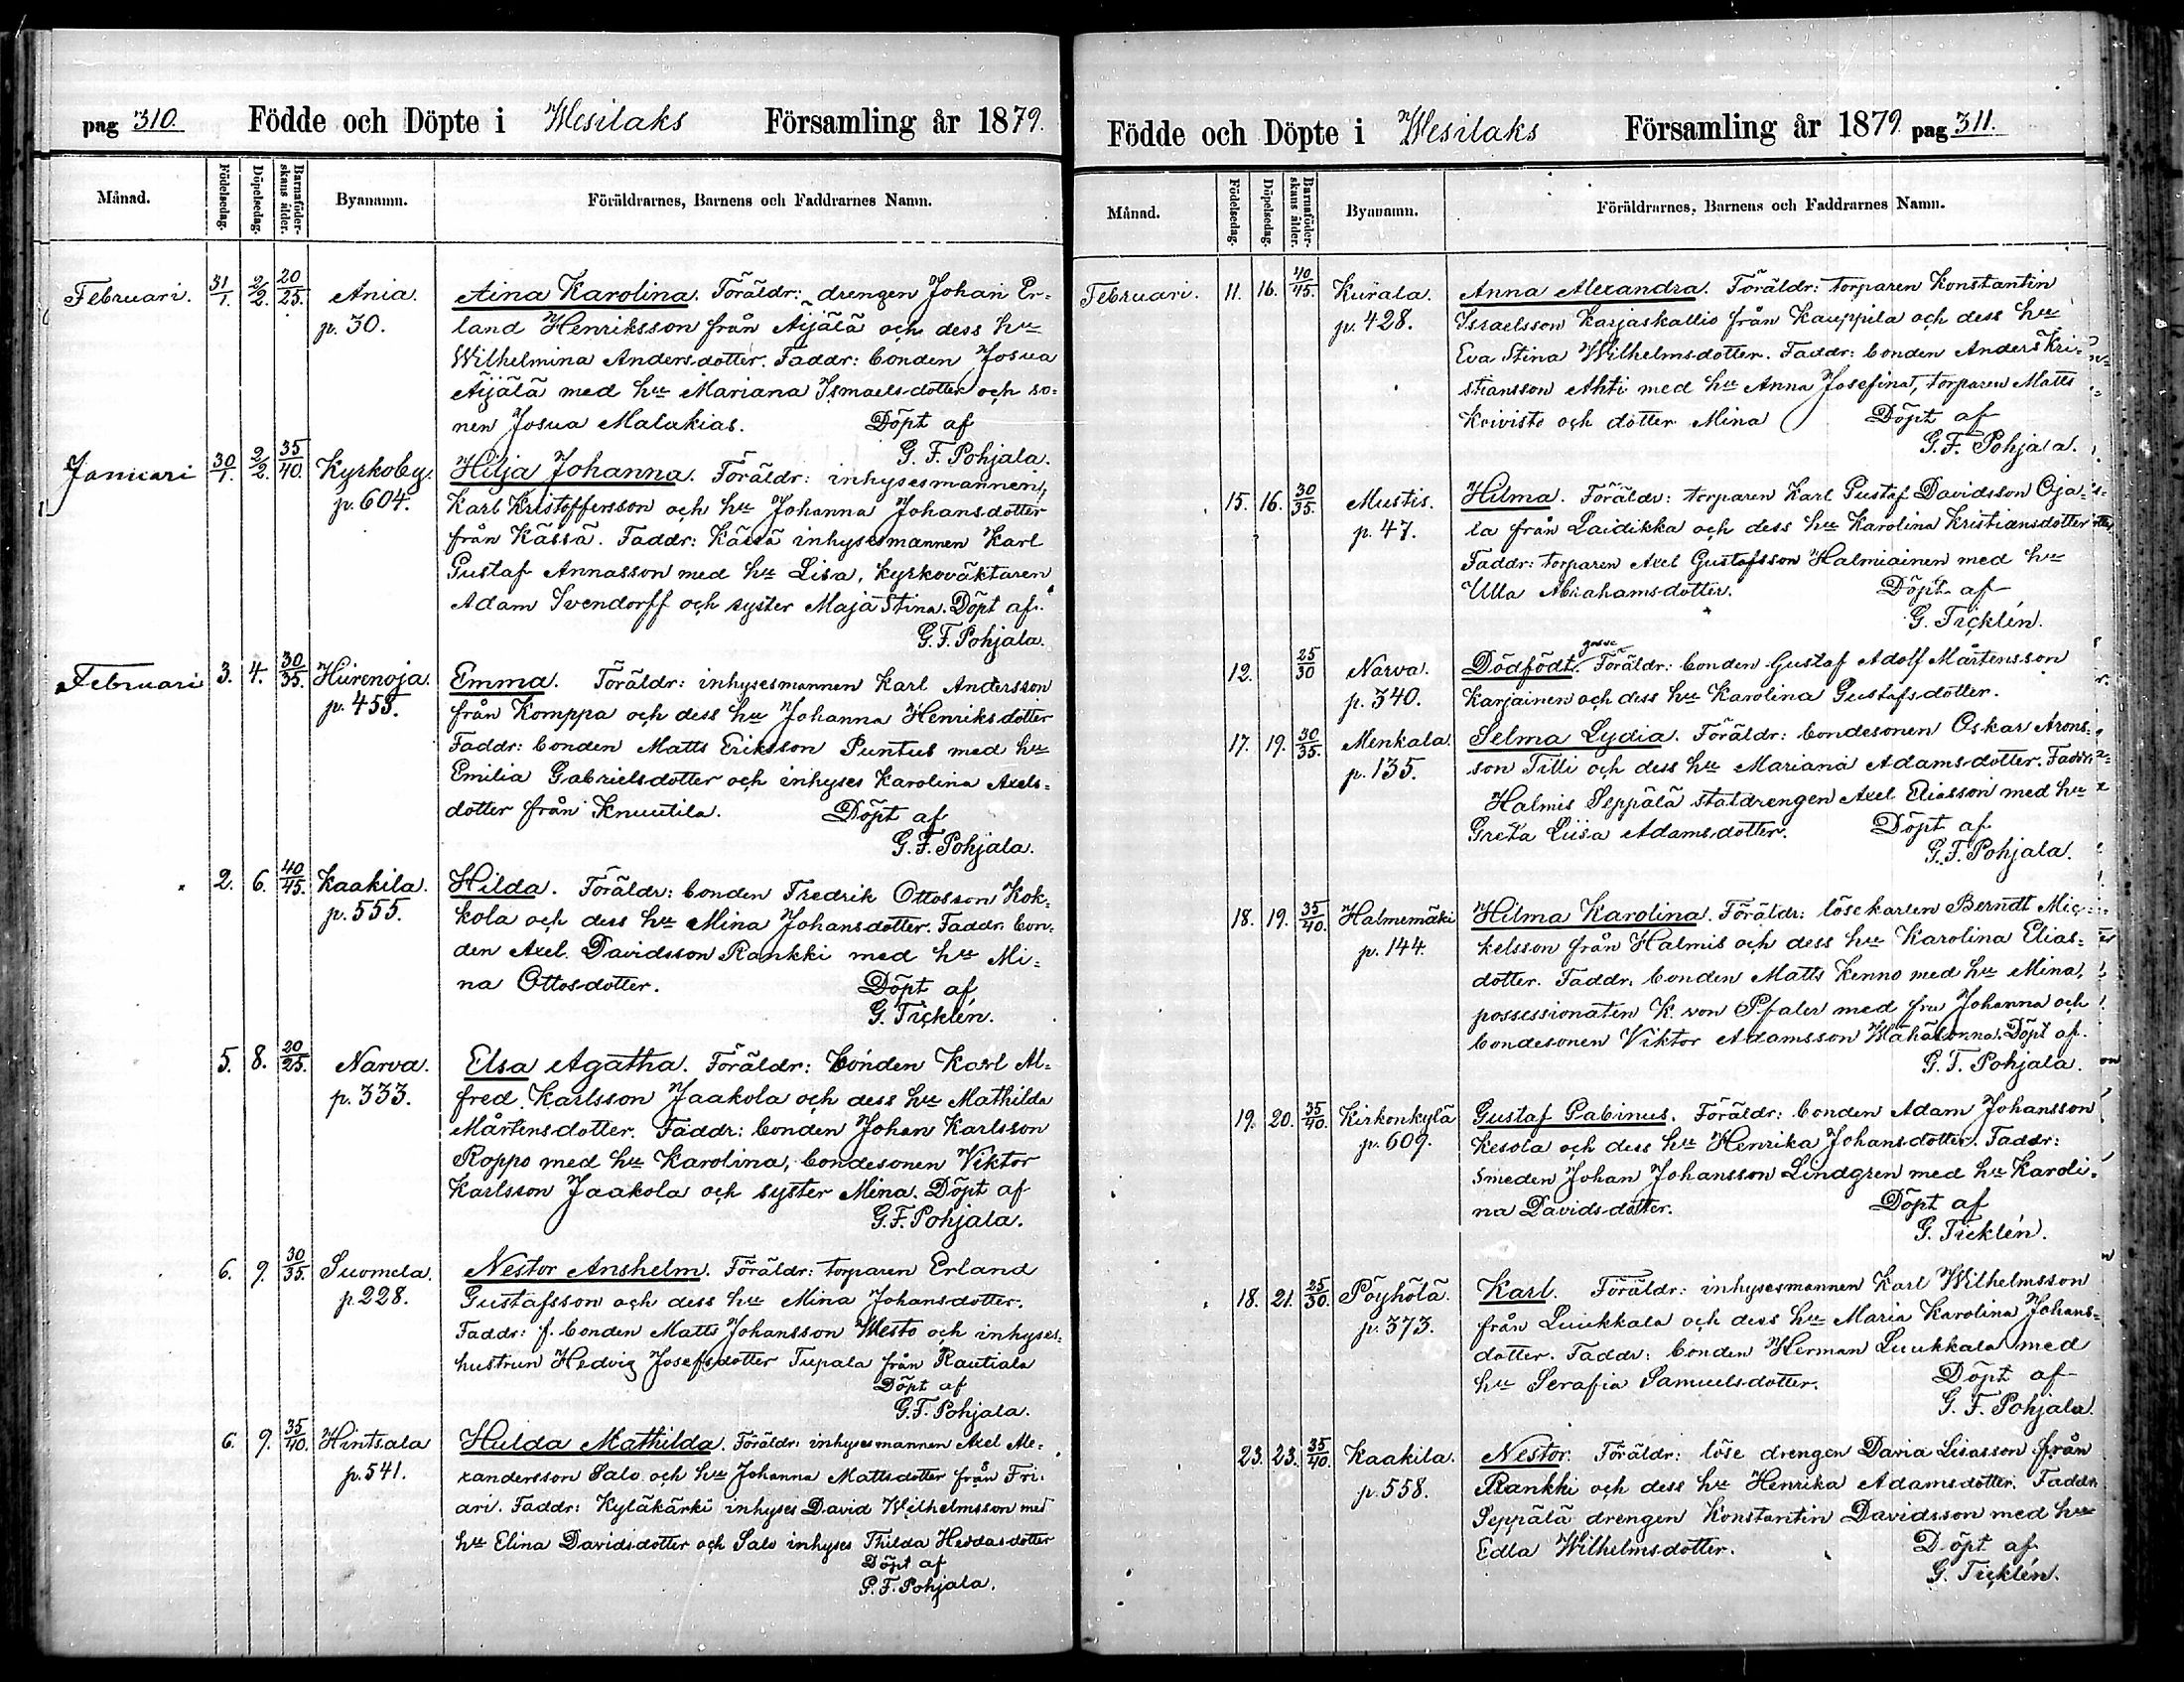 pag 310. Födde och Döpte i Wesilaks Församling år 1879.
Månad. Födelsedag. Döpelsedag. Barnaföderskans ålder. Byanamn. Föräldrarnes, Barnens och Faddrarnes Namn.
Februari. 31/1. 2/2. 20/25. Ania. Aina Karolina. Föräldr: drengen Johan Er=
p. 30. land Henriksson från Äijälä och dess hu
Wilhelmina Andersdotter. Faddr: bonden Josua
Äijälä med hu Mariana Ismaelsdotter och so=
nen Josua Malakias. Döpt af
G. F. Pohjala.
Januari 30/1. 2/2. 35/40. Kyrkoby. Hilja Johanna. Föräldr: inhysesmannen
p. 604. Karl Kristoffersson och hu Johanna Johansdotter
från Kässä. Faddr: Kässä inhysesmannen Karl
Gustaf Annasson med hu Lisa, kyrkoväktaren
Adam Svendorff och syster Maja Stina. Döpt af
G. F. Pohjala.
Februari 3. 4. 30/35. Hürenoja. Emma. Föräldr: inhysesmannen Karl Andersson
p. 455. från Komppa och dess hu Johanna Henriksdotter
Faddr: bonden Matts Eriksson Puntus med hu
Emilia Gabrielsdotter och inhyses Karolina Axels=
dotter från Knuutila. Döpt af
G. F. Pohjala.
2. 6. 40/45. Kaakila. Hilda. Föräldr: bonden Fredrik Ottosson Kok=
p. 555. kola och dess hu Mina Johansdotter. Faddr. bon=
den Axel Davidsson Rankki med hu Mi=
na Ottosdotter. Döpt af
G. Ticklén.
5. 8. 20/25. Narva. Elsa Agatha. Föräldr: bonden Karl Al=
p. 333. fred Karlsson Jaakola och dess hu Mathilda
Mårtensdotter. Faddr: bonden Johan Karlsson
Roppo med hu Karolina, bondesonen Viktor
Karlsson Jaakola och syster Mina. Döpt af
G. F. Pohjala.
6. 9. 30/35. Suomela. Nestor Anshelm. Föräldr: torparen Erland
p. 228. Gustafsson och dess hu Mina Johansdotter.
Faddr: f. bonden Matts Johansson Westo och inhyses=
hustrun Hedvig Josefsdotter Tupala från Rautiala
Döpt af
G. F. Pohjala.
6. 9. 35/40. Hintsala Hulda Mathilda. Föräldr: inhysesmannen Axel Ale=
p. 541. xandersson Salo och hu Johanna Mattsdotter från Fri=
ari. Faddr: Kyläkärki inhyses David Wilhelmsson med
hu Elina Davidsdotter och Salo inhyses Thilda Heddasdotter
Döpt af
G. F. Pohjala.
Födde och Döpte i Wesilaks Församling år 1879 pag 311.
Månad. Födelsedag. Döpelsedag. Barnaföderskans ålder. Byanamn. Föräldrarnes, Barnens och Faddrarnes Namn.
Februari. 11. 16. 40/45. Kurala. Anna Alexandra. Föräldr: torparen Konstantin
p. 428. Israelsson Karjaskallio från Kauppila och dess hu
Eva Stina Wilhelmsdotter. Faddr: bonden Anders Kri=
stiansson Ahti med hu Anna Josefina, torparen Matts
Koivisto och dotter Mina Döpt af
G. F. Pohjala.
15. 16. 30/35. Mustis. Hilma. Föräldr: torparen Karl Gustaf Davidsson Oja=
p. 47. la från Laidikka och dess hu Karolina Kristiansdotter
Faddr: torparen Axel Gustafsson Halmiainen med hu
Ulla Abrahamsdotter. Döpt af
G. Ticklén.
12. 25/30 Narva. Dödfödt gosse. Föräldr: bonden Gustaf Adolf Mårtensson
p. 340. Karjainen och dess hu Karolina Gustafsdotter.
17. 19. 30/35. Menkala. Selma Lydia. Föräldr: bondesonen Oskar Arons=
p. 135. son Titti och dess hu Mariana Adamsdotter. Faddr:
Halmis Seppälä staldrengen Axel Eliasson med hu
Greta Liisa Adamsdotter. Döpt af
G. F. Pohjala.
18. 19. 35/40. Halmemäki Hilma Karolina. Föräldr: lösekarlen Berndt Mic=
p. 144. kelsson från Halmis och dess hu Karolina Elias=
dotter. Faddr. bonden Matts Kenno med hu Mina,
possessionaten K. von Pfaler med fru Johanna och
bondesonen Viktor Adamsson Wähätonna. Döpt af
G. F. Pohjala.
19. 20. 35/40. Kirkonkylä Gustaf Gabinus. Föräldr: bonden Adam Johansson
p. 609. Kesola och dess hu Henrika Johansdotter. Faddr:
Smeden Johan Johansson Lindgren med hu Karoli=
na Davidsdotter. Döpt af
G. Ticklén.
18. 21. 25/30. Pöyhölä. Karl. Föräldr: inhysesmannen Karl Wilhelmsson
p. 373. från Luukkala och dess hu Maria Karolina Johans=
dotter. Faddr: bonden Herman Luukkala med
hu Serafia Samuelsdotter. Döpt af
G. F. Pohjala.
23. 23. 35/40. Kaakila. Nestor. Föräldr: löse drengen Davia Lisasson från
p. 558. Rankki och dess hu Henrika Adamsdotter. Faddr
Seppälä drengen Konstantin Davidsson med hu
Edla Wilhelmsdotter. Döpt af
G. Ticklén.